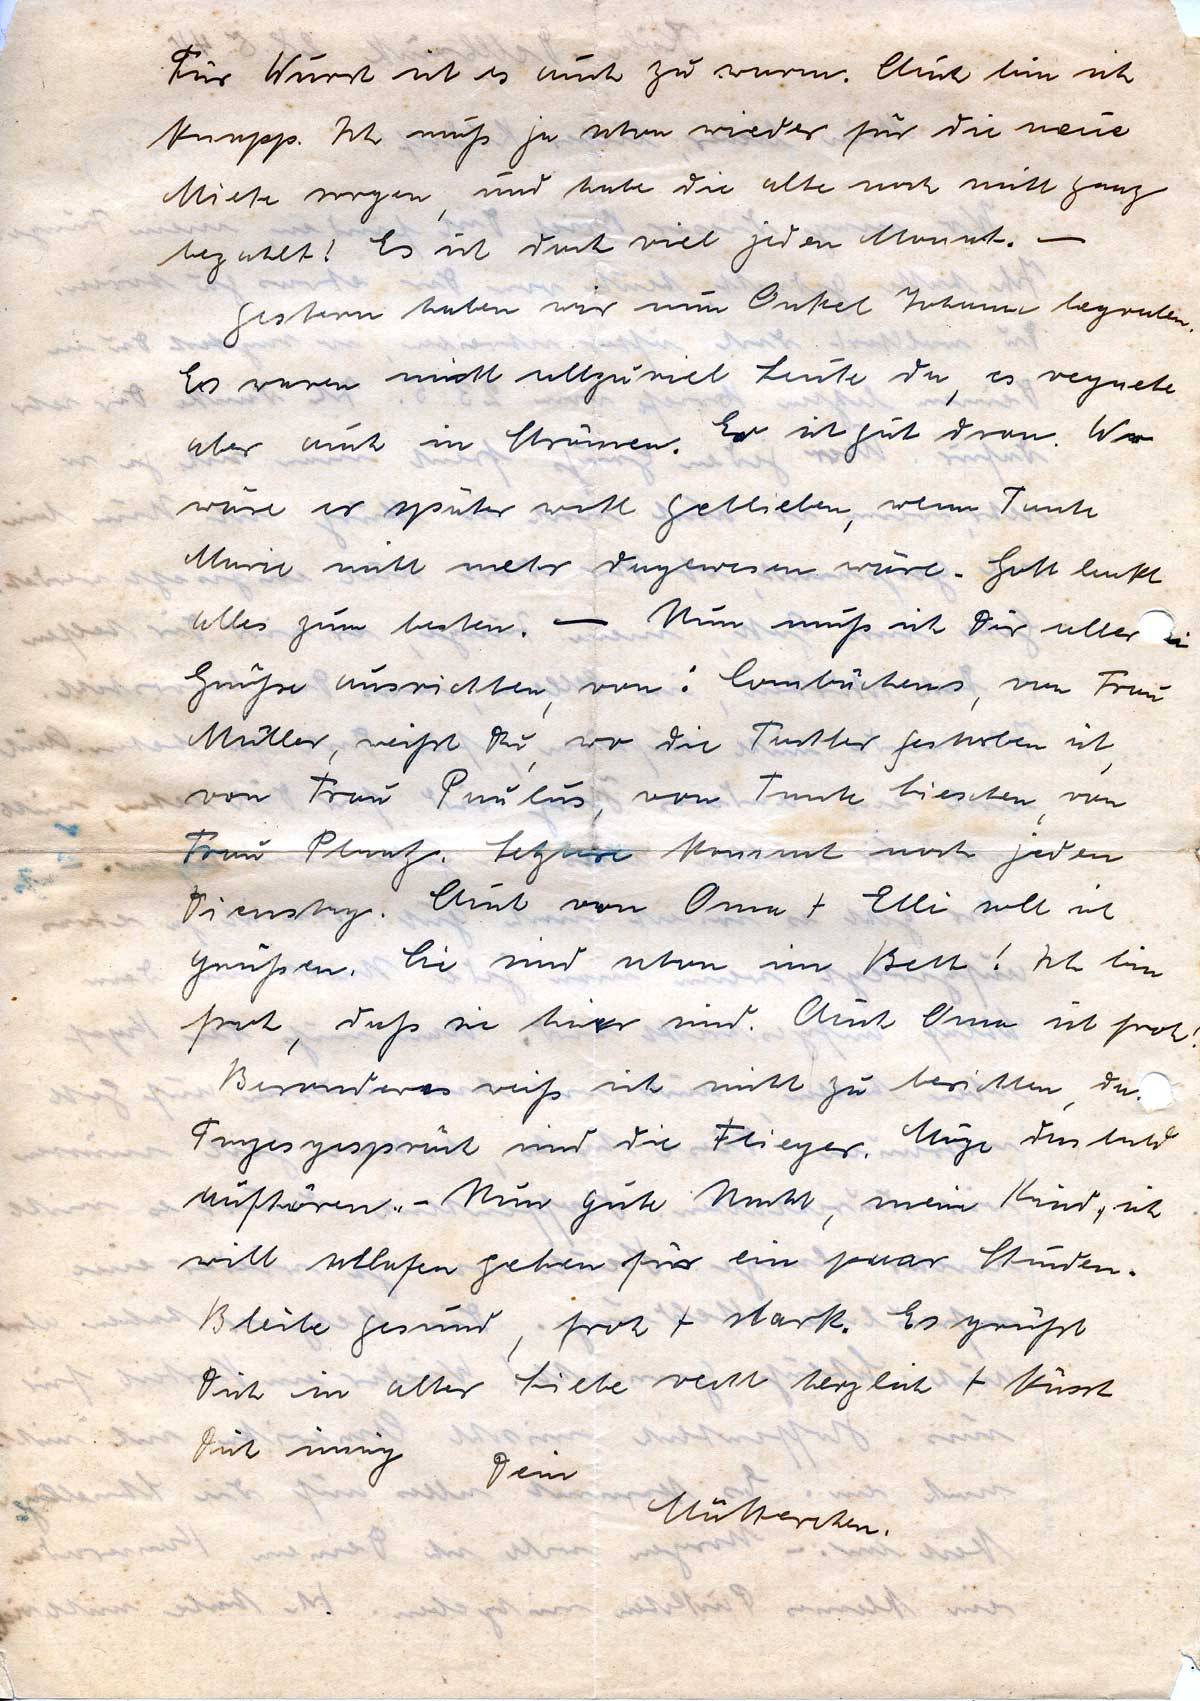 Für Wurst ist es auch zu warm. Auch bin ich
knapp. Ich muß ja schon wieder für die neue
Miete sorgen, und habe die alte noch nicht ganz
bezahlt! Es ist doch viel jeden Monat. —
Gestern haben wir nun Onkel Johann begraben.
Es waren nicht allzuviel Leute da, es regnete
aber auch in Strömen. Er ist gut dran. Wo
wäre er später wohl geblieben, wenn Tante
Marie nicht mehr dagewesen wäre. Gott lenkt
alles zum besten. — Nun muß ich Dir allerlei
Grüße ausrichten, von: Combüchens, von Frau
Müller, weißt Du, wo die Tochter gestorben ist,
von Frau Paulus, von Tante Lieschen, von
Frau Plaatz. Letztere kommt noch jeden
Dienstag. Auch von Oma + Elli soll ich
grüßen. Sie sind schon im Bett! Ich bin
froh, daß sie hier sind. Auch Oma ist froh!
Besonderes weiß ich nicht zu berichten, das
Tagesgespräch sind die Flieger. Möge das bald
aufhören. - Nun gute Nacht, mein Kind, ich
will schlafen gehen für ein paar Stunden.
Bleibe gesund, froh + stark. Es grüßt
Dich in alter Liebe recht herzlich + küsst
Dich innig Dein
Mütterchen.